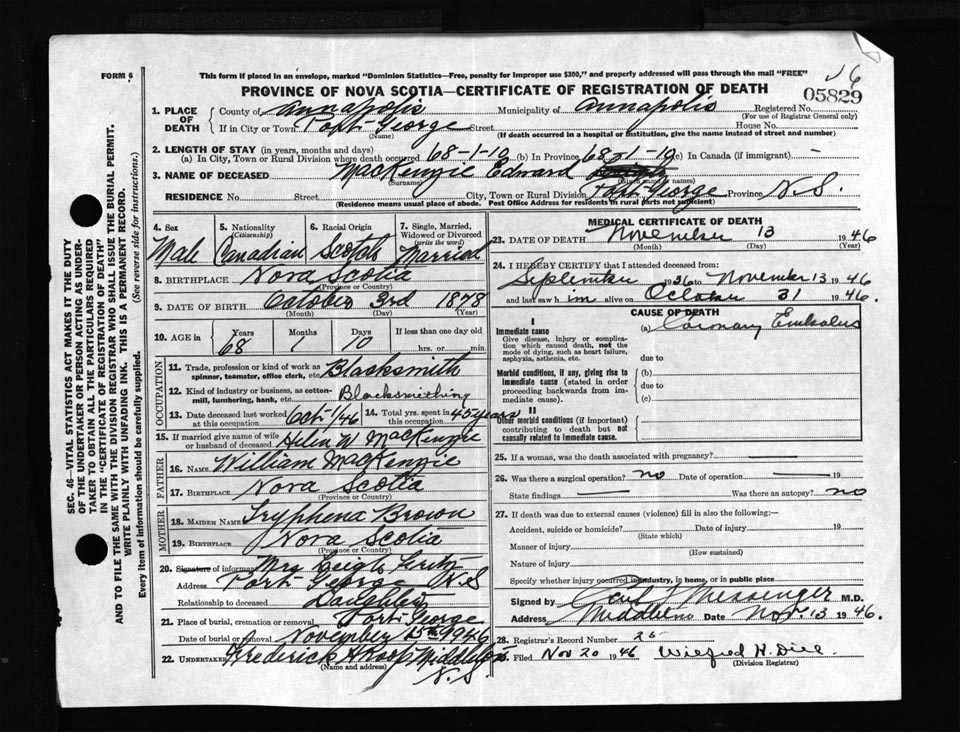 FORM 6
This form if placed in an envelope, marked "Dominion Statistics—Free, penalty for improper use $300," and properly addressed will pass through the mail "FREE"
PROVINCE OF NOVA SCOTIA—CERTIFICATE OF REGISTRATION OF DEATH
05829
1. PLACE OF DEATH
County of Annapolis Municipality of Annapolis Registered No.
(For use of Registrar General only)
If in City or Town Port George Street House No.
(Name) (If death occurred in a hospital or institution, give the name instead of street and number)
2. LENGTH OF STAY (in years, months and days)
(a) In City, Town or Rural Division where death occurred 68-1-10 (b) In Province 68-1-10 (c) In Canada (if immigrant) —
3. NAME OF DECEASED MacKenzie Edward
(Surname) (Given name or names)
RESIDENCE No. Street City, Town or Rural Division Port George Province N.S.
(Residence means usual place of abode. Post Office Address for residents in rural parts not sufficient)
4. Sex Male
5. Nationality (Citizenship) Canadian
6. Racial Origin Scotch
7. Single, Married, Widowed or Divorced (write the word) Married
8. BIRTHPLACE Nova Scotia
(Province or Country)
9. DATE OF BIRTH October 3rd 1878
(Month) (Day) (Year)
10. AGE in Years 68 Months 1 Days 10 If less than one day old hrs. or min.
OCCUPATION
11. Trade, profession or kind of work as spinner, teamster, office clerk, etc. Blacksmith
12. Kind of industry or business, as cotton-mill, lumbering, bank, etc. Blacksmithing
13. Date deceased last worked at this occupation Oct-1/46
14. Total yrs. spent in this occupation 45 years
15. If married give name of wife or husband of deceased Helen W MacKenzie
FATHER
16. NAME William MacKenzie
17. BIRTHPLACE Nova Scotia
(Province or Country)
MOTHER
18. MAIDEN NAME Tryphena Brown
19. BIRTHPLACE Nova Scotia
(Province or Country)
20. Signature of informant Mrs Leigh
Address Port George N.S
Relationship to deceased Daughter
21. Place of burial, cremation or removal Port George
Date of burial or removal November 15th 1946
22. UNDERTAKER Frederick A Roop Middleton N.S.
(Name and address)
MEDICAL CERTIFICATE OF DEATH
23. DATE OF DEATH November 13 1946
(Month) (Day) (Year)
24. I HEREBY CERTIFY that I attended deceased from:
September 1936 to November 13 1946
and last saw him alive on October 31 1946.
CAUSE OF DEATH
I
Immediate cause (a) Coronary Embolus
Give disease, injury or complication which caused death, not the mode of dying, such as heart failure, asphyxia, asthenia, etc.
due to
Morbid conditions, if any, giving rise to immediate cause (stated in order proceeding backwards from immediate cause).
(b)
due to
(c)
II
Other morbid conditions (if important) contributing to death but not causally related to immediate cause.
25. If a woman, was the death associated with pregnancy? —
26. Was there a surgical operation? no Date of operation — 19
State findings — Was there an autopsy? no
27. If death was due to external causes (violence) fill in also the following:—
Accident, suicide or homicide? Date of injury 19
(State which)
Manner of injury
(How sustained)
Nature of injury
Specify whether injury occurred in industry, in home, or in public place
Signed by Messenger M.D.
Address Middleton Date Nov. 13 1946.
28. Registrar's Record Number 25
Filed Nov 20 1946 Wilfred H. Dill
(Division Registrar)
SEC. 46—VITAL STATISTICS ACT MAKES IT THE DUTY
OF THE UNDERTAKER OR PERSON ACTING AS UNDERTAKER TO OBTAIN ALL THE PARTICULARS REQUIRED
IN THE "CERTIFICATE OF REGISTRATION OF DEATH"
AND TO FILE THE SAME WITH THE DIVISION REGISTRAR WHO SHALL ISSUE THE BURIAL PERMIT.
WRITE PLAINLY WITH UNFADING INK. THIS IS A PERMANENT RECORD.
Every item of information should be carefully supplied. (See reverse side for instructions.)